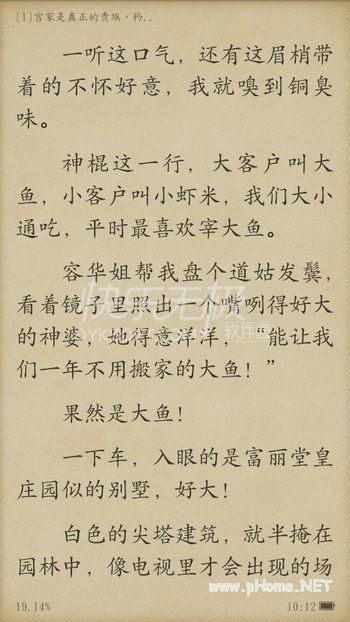 [1]宫家是真正的贵族，矜..
一听这口气，还有这眉梢带
着的不怀好意，我就嗅到铜臭
味。
神棍这一行，大客户叫大
鱼，小客户叫小虾米，我们大小
通吃，平时最喜欢宰大鱼。
容华姐帮我盘个道姑发鬓，
看着镜子里照出一个嘴咧得好大
的神婆，她得意洋洋，“能让我
们一年不用搬家的大鱼！”
果然是大鱼！
一下车，入眼的是富丽堂皇
庄园似的别墅，好大！
白色的尖塔建筑，就半掩在
园林中，像电视里才会出现的场
www.pHome.NET
19.14%
10:12